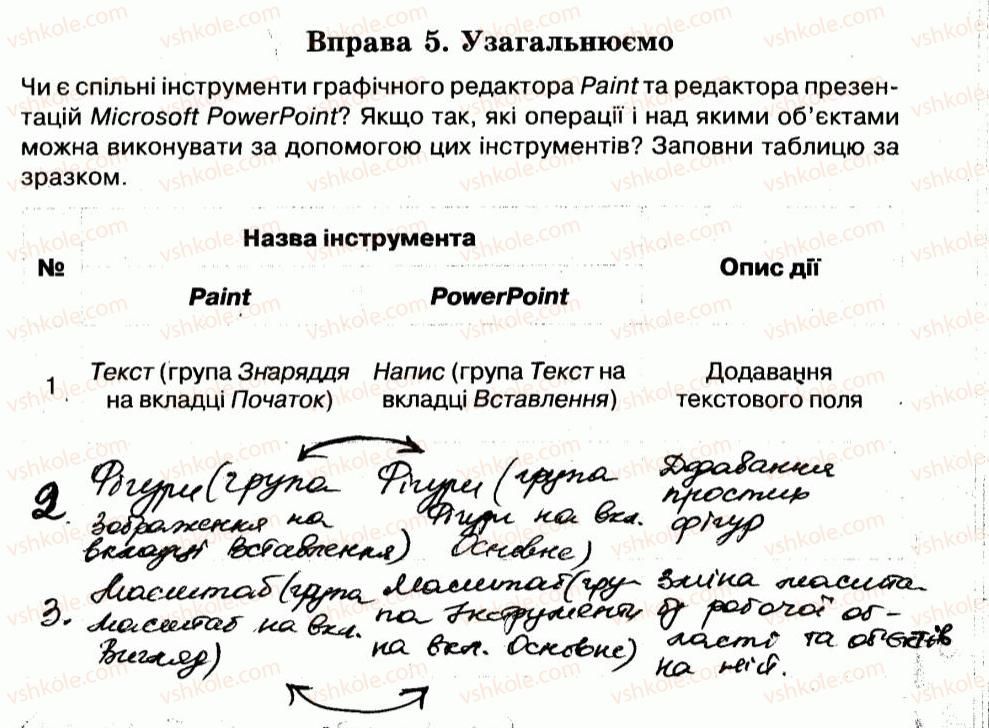 Вправа 5. Узагальнюємо
Чи є спільні інструменти графічного редактора Paint та редактора презен-
тацій Microsoft PowerPoint? Якщо так, які операції і над якими об’єктами
можна виконувати за допомогою цих інструментів? Заповни таблицю за
зразком.
№
Назва інструмента
Опис дії
Paint
PowerPoint
1
Текст (група Знаряддя
на вкладці Початок)
Напис (група Текст на
вкладці Вставлення)
Додавання
текстового поля
2
Фігури (група
зображення на
вкладці Вставлення)
Фігури (група
Фігури на вкл.
Основне)
Додавання
простих
фігур
3.
Масштаб (група
Масштаб на вкл.
Вигляд)
Масштаб (гру-
па Інструменти
на вкл. Основне)
Зміна масшта
бу робочої об-
ласті та об'єктів
на ній.
vshkole.com